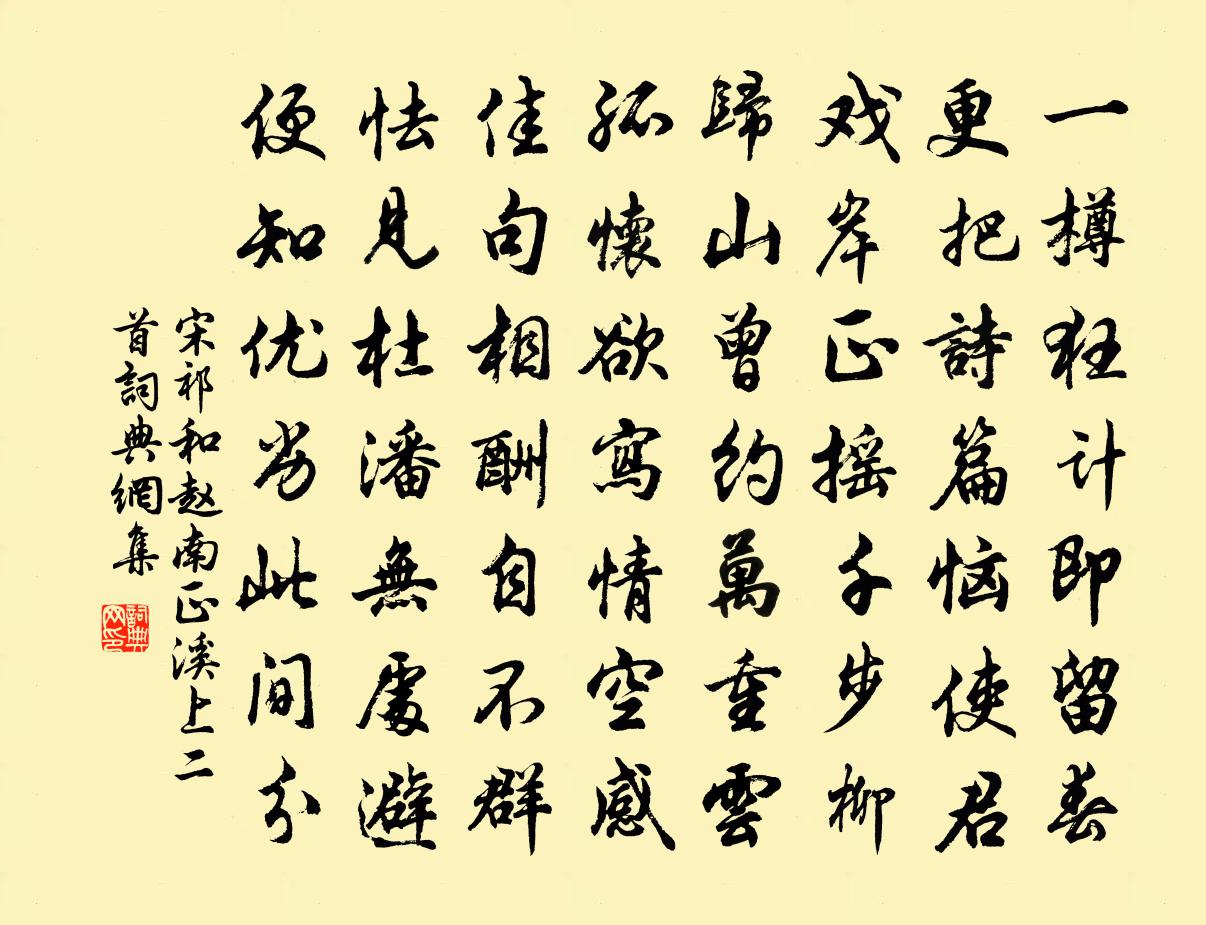 一樽狂计即留春
更把詩篇恼使君
戏岸正摇千步柳
歸山曾约萬重雲
孤懷欲寫情空感
佳句相酬自不群
怯見杜潘無處避
便知优劣此间分
宋祁和赵南正溪上二
首詞典網集
詞典网印